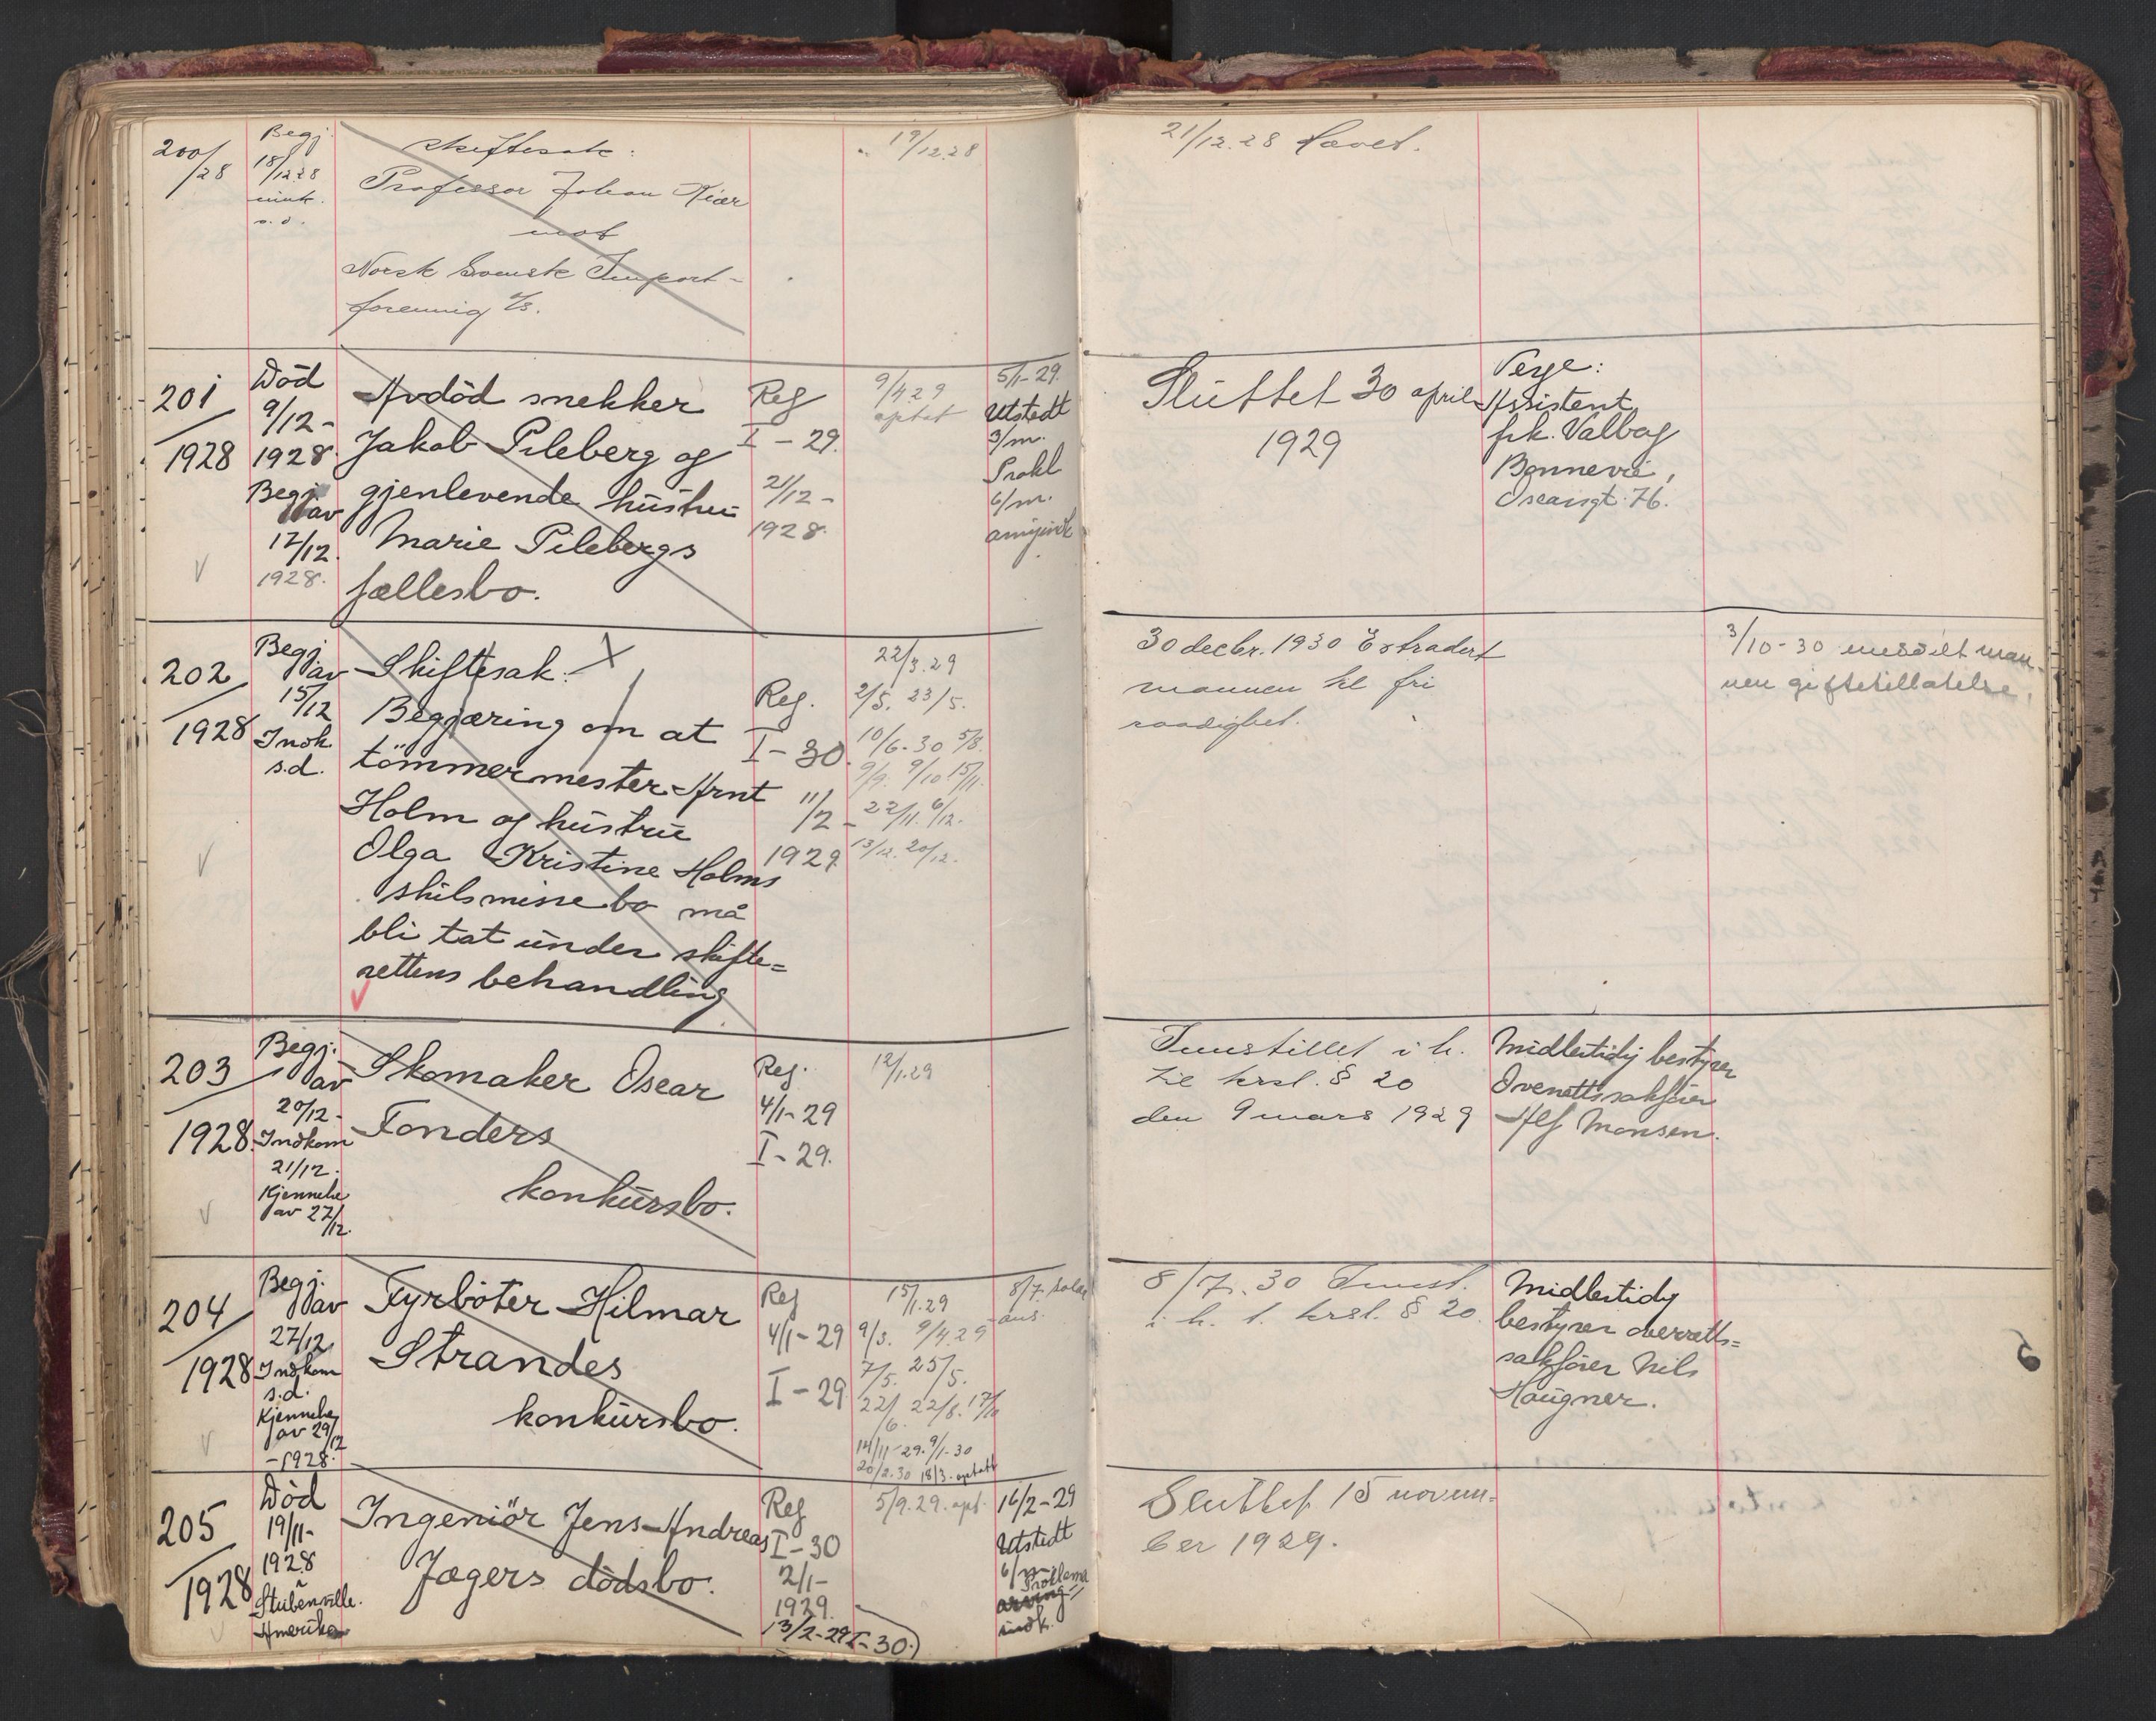 200/28
Begj.
18/12 28
innk.
s.d.
Skiftesak:
Professor Johan Kiær
mot
Norsk Svensk Import-
forening A/S.
19/12.28
21/12.28 Hævet.
201/1928
Död
9/12-
1928
Begj.
av
17/12.
1928.
Avdöd snekker
Jakob Pileberg og
gjenlevende hustru
Marie Pilebergs
fællesbo.
Reg
I-29.
21/12-
1928.
9/4 29
optat
5/1-29.
Utstedt
3/m.
Prokl
6/m.
Sluttet 30 april
1929
Verge:
Assistent
frk. Valbog
Bonnevie,
Oscarsgt. 76.
202/1928
Begj.
av
15/12
Indk.
s.d.
Skiftesak:
Begjæring om at
tömmermester Arnt
Holm og hustru
Olga Kristine Holms
skilsmissebo må
bli tat under skifte=
rettens behandling
Reg.
I-30.
11/2-
1929.
22/3.29
2/5. 23/5.
10/6-30 5/8.
9/9. 9/10 15/11.
22/11. 6/12.
13/12. 20/12.
30 decbr. 1930 Extradert
mannen til fri
raadighet.
3/10-30 meddelt man-
nen giftetillatelse.
203/1928.
Begj.
av
20/12-
Indkom
21/12.
Kjennelse
av 27/12.
Skomaker Oscar
Fonders
konkursbo.
Reg.
4/1-29
I-29.
12/1.29
Innstillet i h.
til krsl. § 20
den 9 mars 1929
Midlertidig bestyrer
Overrettssakförer
Alf Monsen.
204/1928
Begj.
av
27/12
Indkom
s.d.
Kjennelse
av 29/12
-1928.
Fyrböter Hilmar
Strandes
konkursbo.
Reg
4/1-29
I-29
15/1.29
9/3. 9/4 29
7/5. 25/5.
22/6. 22/8. 17/10
14/11-29. 9/1-30
20/2.30 18/3. optatt
8/7.
8/7. 30 Innst.
i h. t. krsl. § 20.
Midlertidig
bestyrer overretts=
sakförer Nils
Haugner.
205/1928
Död
19/11-
1928
Stubenville.
Amerika
Ingeniör Jens Andreas
Jægers dödsbo.
Reg
I-30
2/1-
1929.
13/2-29 I-30.
5/9.29. opt.
16/2-29
Utstedt
6/m
Proklama
indk.
Sluttet 15 novem-
ber 1929.